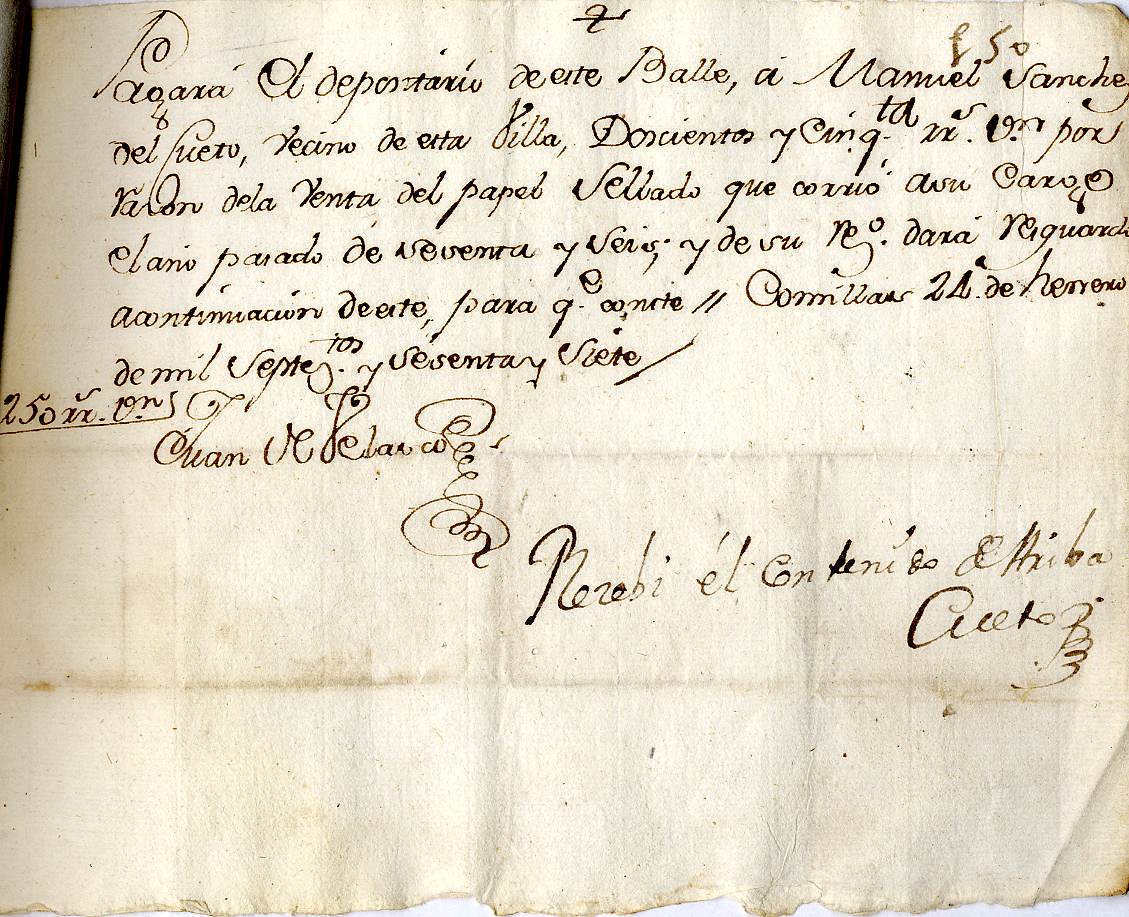 f. 50
Pagará El depositario de este Balle, a Manuel Sanchez
del Cueto, Vecino de esta Villa, Doscientos y Cinq.ta rr.s V.on por
razon dela Venta del papel Sellado que corrió a su Cargo
el año pasado de sesenta y seis; y de su r.vo dará resguardo
acontinuacion de este, para q.e conste // Comillas 24 de henero
de mil Septe.tos y sesenta y siete
250 rr.s V.on
Juan de Velasco
Recebi él Contenido de Arriba
Cueto